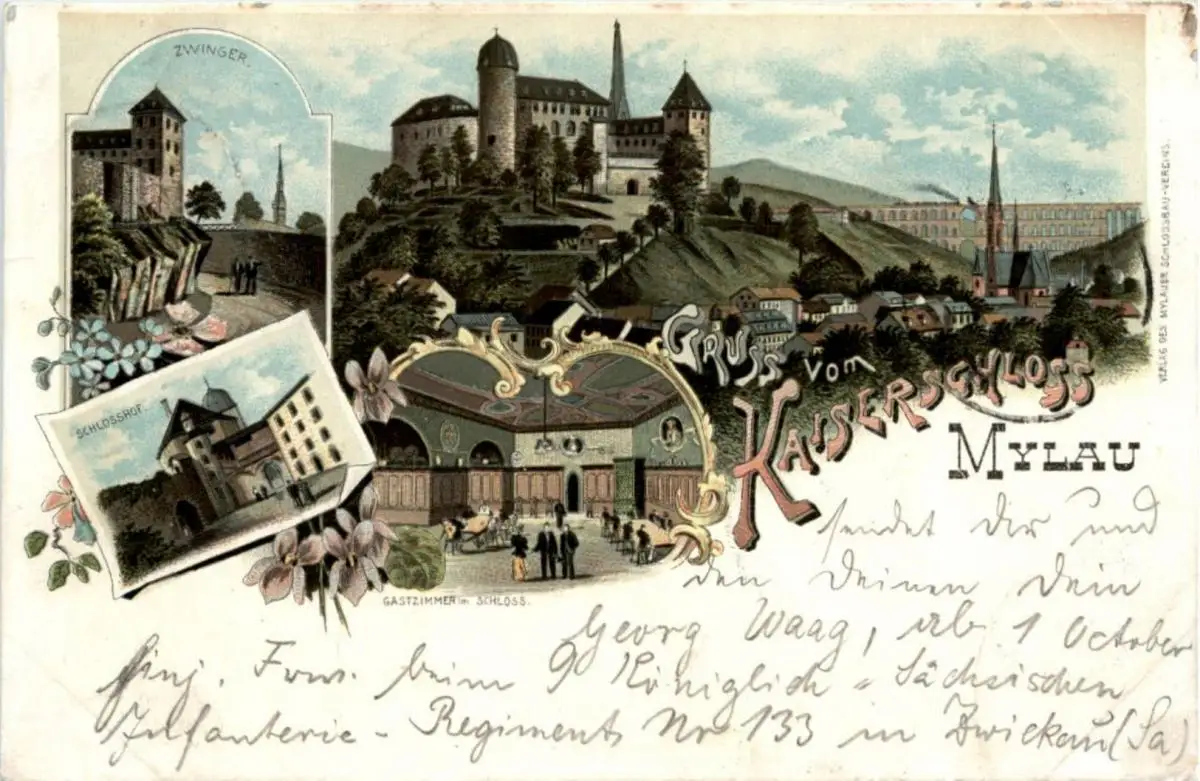 ZWINGER.
VERLAG DES MYLAUER SCHLOSSBAU-VEREINS.
SCHLOSSHOF.
GRUSS vom
KAISERSCHLOSS
MYLAU
GASTZIMMER im SCHLOSS.
sendet Dir und
den Deinen Dein
Georg Waag, ab 1 October
Einj. Frw. beim 9 Königlich - Sächsischen
Infanterie - Regiment Nr 133 in Zwickau (Sa)